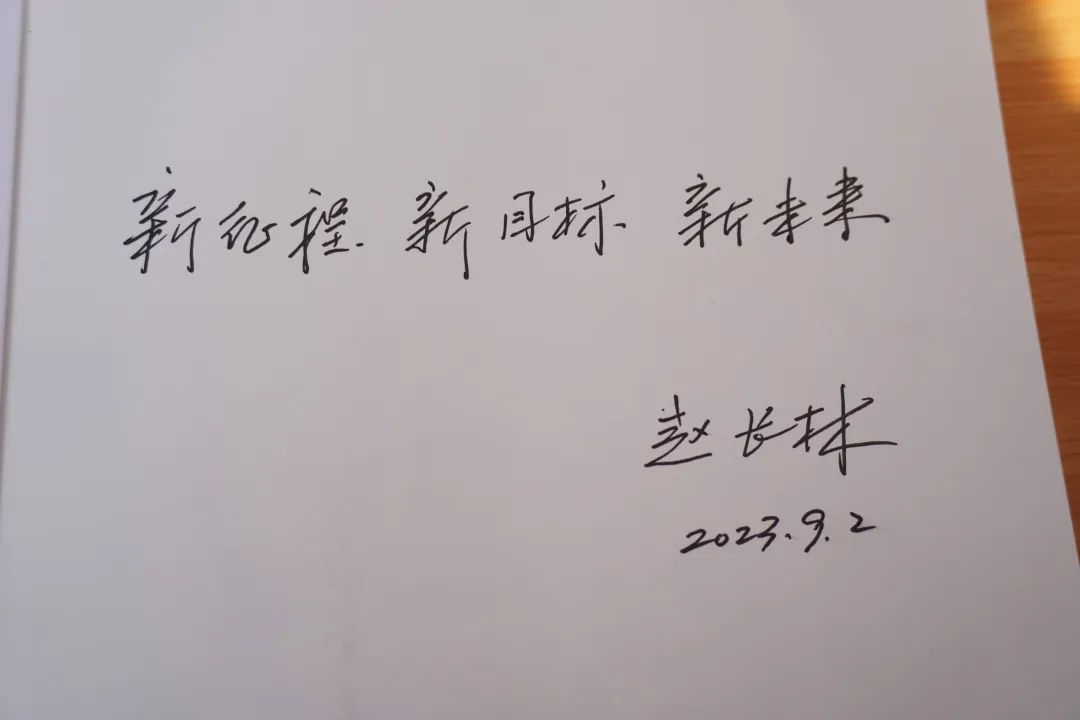 新征程 新目标 新未来
赵长林
2023.9.2